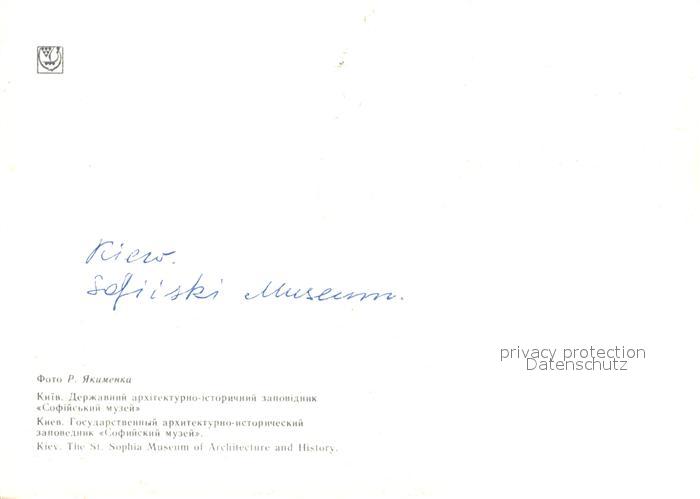 Kiew.
Sofiiski Museum.
privacy protection
Datenschutz
Фото Р. Якименка
Київ. Державний архітектурно-історичний заповідник
«Софійський музей»
Киев. Государственный архитектурно-исторический
заповедник «Софийский музей».
Kiev. The St. Sophia Museum of Architecture and History.